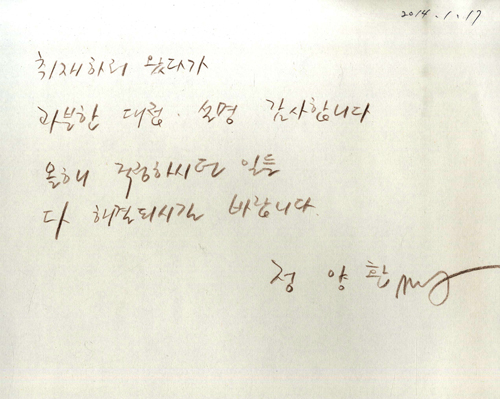 2014. 1. 17
취재하러 왔다가
과분한 대접·설명 감사합니다
올해 걱정하시던 일들
다 해결되시길 바랍니다.
정 양 환